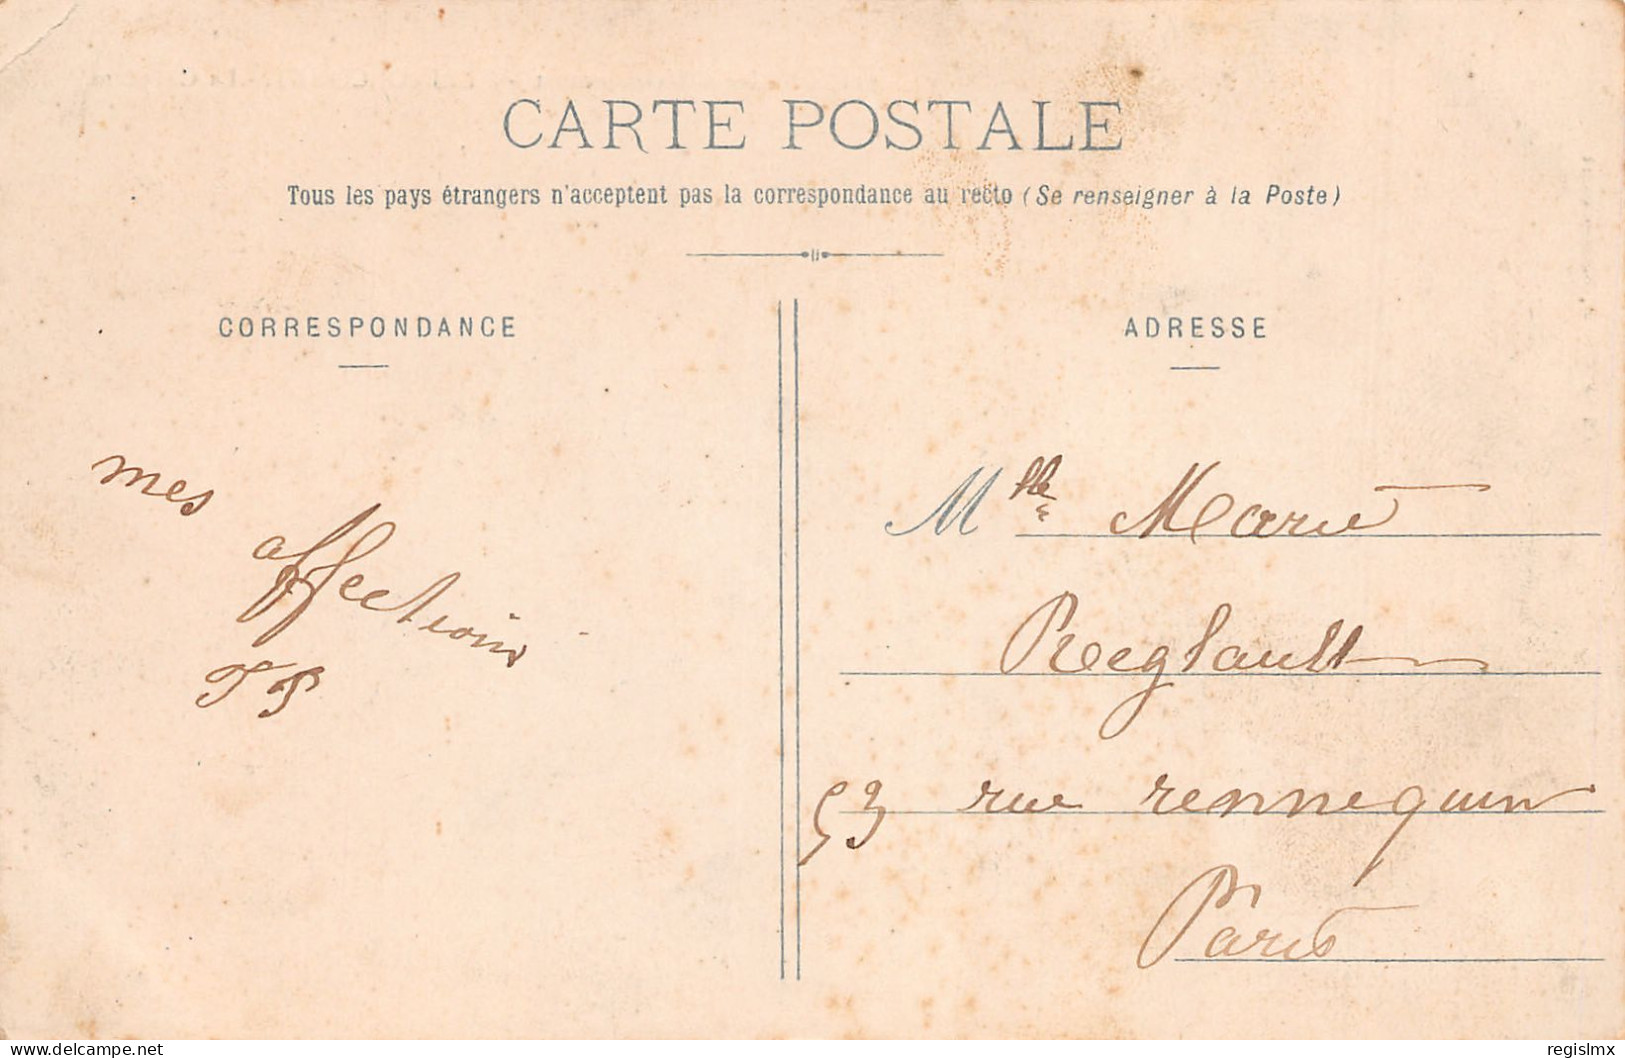 CARTE POSTALE
Tous les pays étrangers n'acceptent pas la correspondance au recto (Se renseigner à la Poste)
CORRESPONDANCE
ADRESSE
mes
affections
Mlle Marie
Reglault
53 rue rennequin
Paris
www.delcampe.net
regislmx